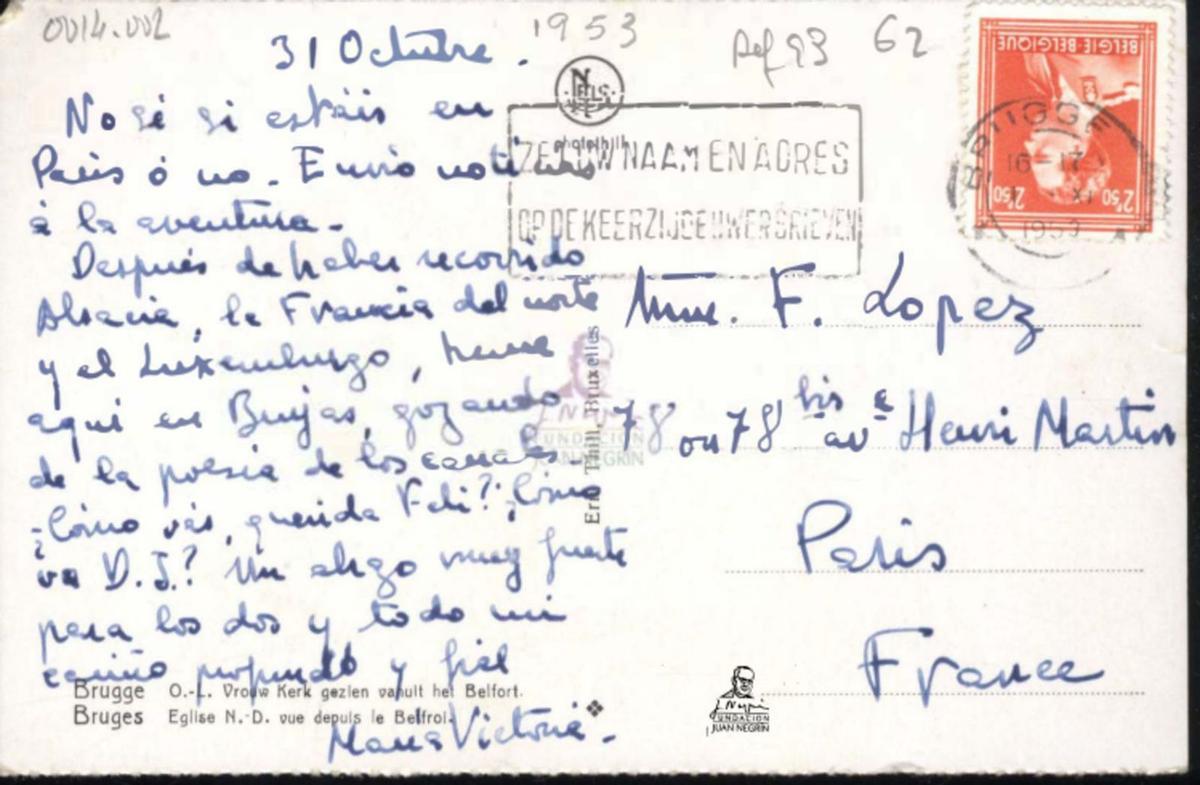 0014.002
1953
Ref 93
62
31 Octubre.
No sé si estáis en
París ó no. Envío noticias
á la aventura.
Después de haber recorrido
Alsacia, la Francia del norte
y el Luxemburgo, heme
aquí en Brujas, gozando
de la poesía de los canales.
¿Cómo vás, querida Feli? ¿Cómo
va D. J.? Un abrazo muy fuerte
para los dos y todo mi
cariño profundo y fiel
Maria Victoria.
NELS
photothill
ZET UW NAAM EN ADRES
OP DE KEERZIJDE UWER BRIEVEN
BELGIE-BELGIQUE
2'50 2'50
BRUGGE
16-17
XI
Mme. F. Lopez
78 ou 78 bis ave Henri Martin
Paris
France
Ern. Thill, Bruxelles
FUNDACION
JUAN NEGRIN
Brugge O.-L. Vrouw Kerk gezien vanuit het Belfort.
Bruges Eglise N.-D. vue depuis le Belfroi.
FUNDACION
JUAN NEGRIN